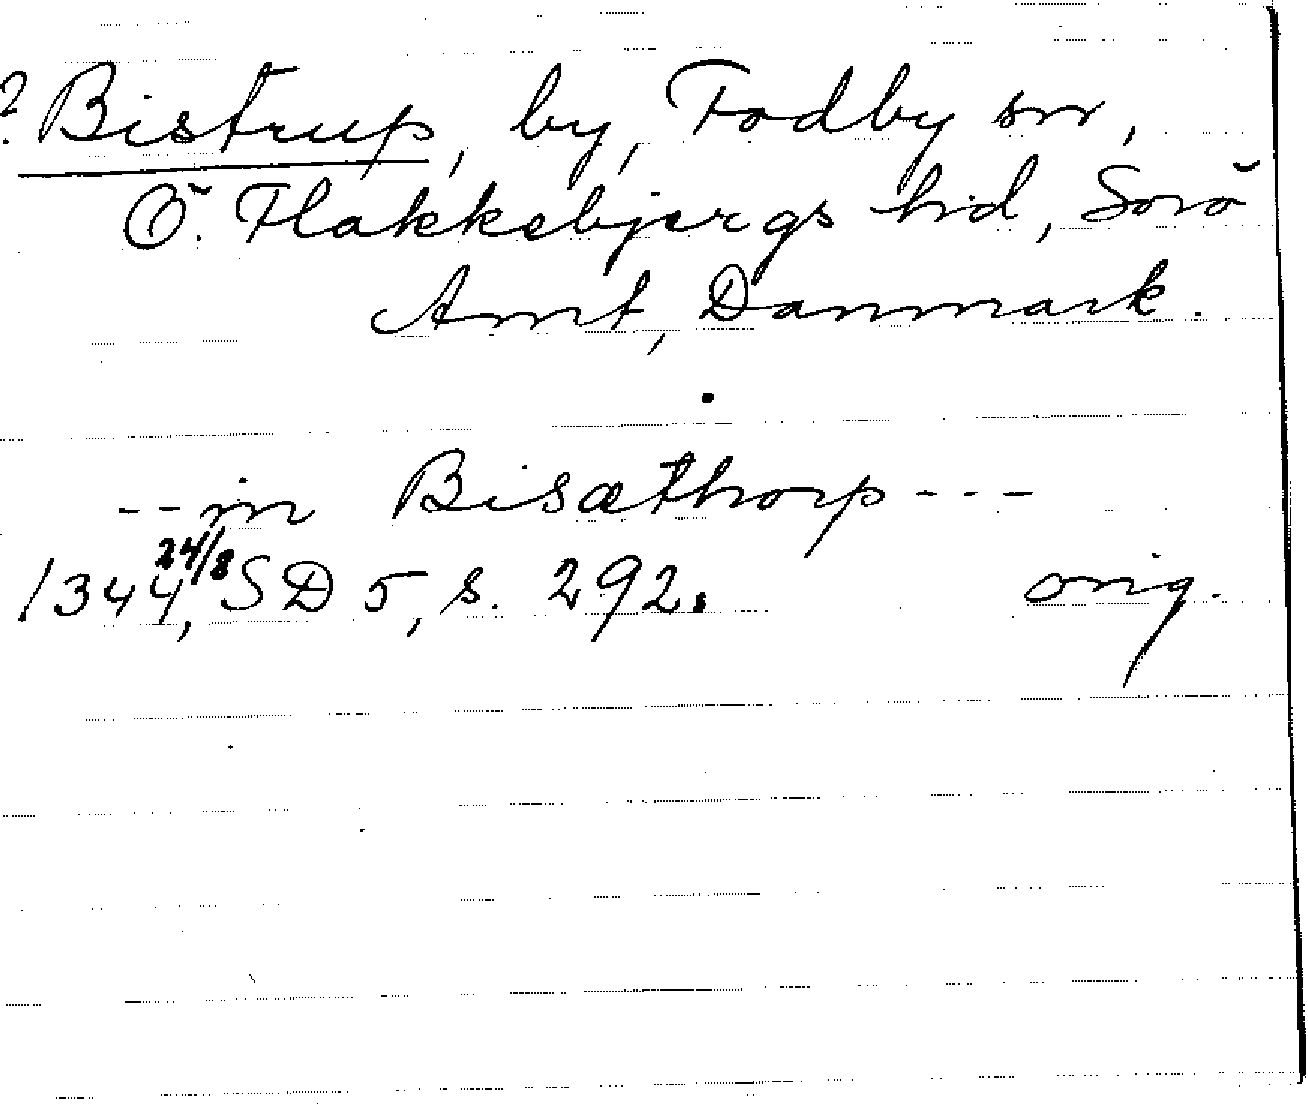 ? Bistrup, by, Fodby sn,
Ö. Flakkebjergs hd, Sorö
Amt, Danmark.
--in Bisæthorp---
1344, 24/8 SD 5, s. 292. orig.